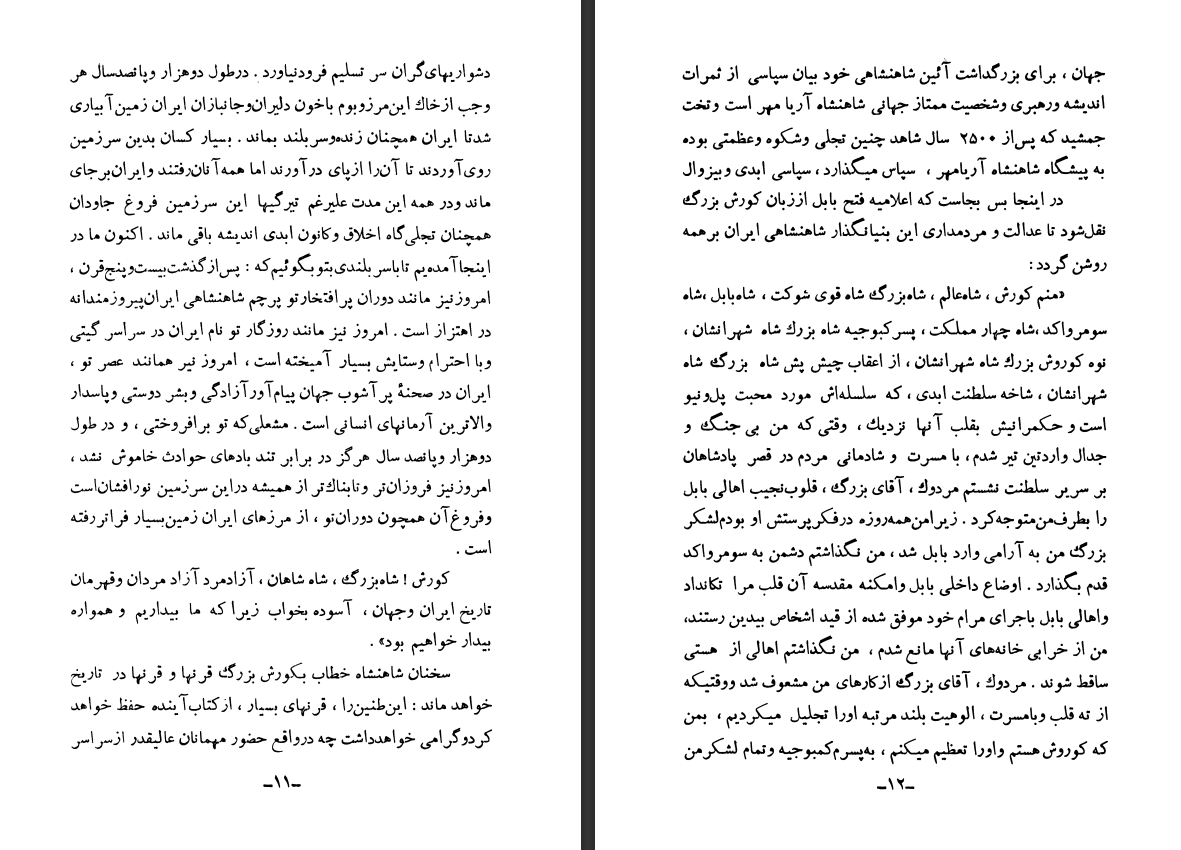 دشواریهای‌گران سر تسلیم فرودنیاورد . درطول دوهزار وپانصدسال هر
وجب ازخاك این‌مرزوبوم باخون دلیران‌وجانبازان ایران زمین‌آبیاری
شدتا ایران همچنان زنده‌وسربلند بماند . بسیار کسان بدین سرزمین
روی‌آوردند تا آن‌را ازپای درآورند اما همه‌آنان‌رفتند وایران‌برجای
ماند ودر همه این مدت علیرغم تیرگیها این سرزمین فروغ جاودان
همچنان تجلی‌گاه اخلاق وکانون ابدی اندیشه باقی ماند . اکنون ما در
اینجاآمده‌یم تاباسربلندی‌بتوبگوئیم‌که : پس‌ازگذشت‌بیست‌وپنج‌قرن ،
امروزنیز مانند دوران پرافتخارتو پرچم شاهنشاهی ایران‌پیروزمندانه
در اهتزاز است . امروز نیز مانند روزگار تو نام ایران در سراسر گیتی
وبا احترام وستایش بسیار آمیخته است ، امروز نیر همانند عصر تو ،
ایران در صحنهٔ پرآشوب جهان پیام‌آورآزادگی وبشر دوستی وپاسدار
والاترین آرمانهای انسانی است . مشعلی‌که تو برافروختی ، و در طول
دوهزار وپانصد سال هرگز در برابر تند بادهای حوادث خاموش نشد ،
امروزنیز فروزان‌تر وتابناك‌تر از همیشه دراین سرزمین نورافشان‌است
وفروغ‌آن همچون دوران‌تو ، از مرزهای ایران زمین‌بسیار فراتررفته
است .
کورش ! شاه‌بزرگ ، شاه شاهان ، آزادمرد آزاد مردان وقهرمان
تاریخ ایران وجهان ، آسوده بخواب زیرا که ما بیداریم و همواره
بیدار خواهیم بود» .
سخنان شاهنشاه خطاب بکورش بزرگ قرنها و قرنها در تاریخ
خواهد ماند : این‌طنین‌را ، قرنهای بسیار ، ازکتاب‌آینده حفظ خواهد
کردوگرامی خواهدداشت چه درواقع حضور مهمانان عالیقدر ازسراسر
ـ۱۱ـ
جهان ، برای بزرگداشت آئین شاهنشاهی خود بیان سپاسی از ثمرات
اندیشه ورهبری وشخصیت ممتاز جهانی شاهنشاه آریا مهر است وتخت
جمشید که پس‌از ۲۵۰۰ سال شاهد چنین تجلی وشکوه وعظمتی بوده
به پیشگاه شاهنشاه آریامهر ، سپاس میگذارد ، سپاسی ابدی وبیزوال
در اینجا بس بجاست که اعلامیه فتح بابل اززبان کورش بزرگ
نقل‌شود تا عدالت و مردمداری این بنیانگذار شاهنشاهی ایران برهمه
روشن گردد :
«منم کورش ، شاه‌عالم ، شاه‌بزرگ شاه قوی شوکت ، شاه‌بابل ،شاه
سومرواکد ،شاه چهار مملکت ، پسرکبوجیه شاه بزرك شاه شهرانشان ،
نوه کوروش بزرك شاه شهرانشان ، از اعقاب چیش پش شاه بزرگ شاه
شهرانشان ، شاخه سلطنت ابدی ، که سلسله‌اش مورد محبت پل‌ونیو
است و حکمرانیش بقلب آنها نزدیك ، وقتی که من بی جنگ و
جدال واردتین تیر شدم ، با مسرت و شادمانی مردم در قصر پادشاهان
بر سریر سلطنت نشستم مردوك ، آقای بزرگ ، قلوب‌نجیب اهالی بابل
را بطرف‌من‌متوجه‌کرد . زیرامن‌همه‌روزه درفکرپرستش او بودم‌لشکر
بزرگ من به آرامی وارد بابل شد ، من نگذاشتم دشمن به سومرواکد
قدم بگذارد . اوضاع داخلی بابل وامکنه مقدسه آن قلب مرا تکانداد
واهالی بابل باجرای مرام خود موفق شده از قید اشخاص بیدین رستند،
من از خرابی خانه‌های آنها مانع شدم ، من نگذاشتم اهالی از هستی
ساقط شوند . مردوك ، آقای بزرگ ازکارهای من مشعوف شد ووقتیکه
از ته قلب وبامسرت ، الوهیت بلند مرتبه اورا تجلیل میکردیم ، بمن
که کوروش هستم واورا تعظیم میکنم ، به‌پسرم‌کمبوجیه وتمام لشکرمن
ـ۱۲ـ